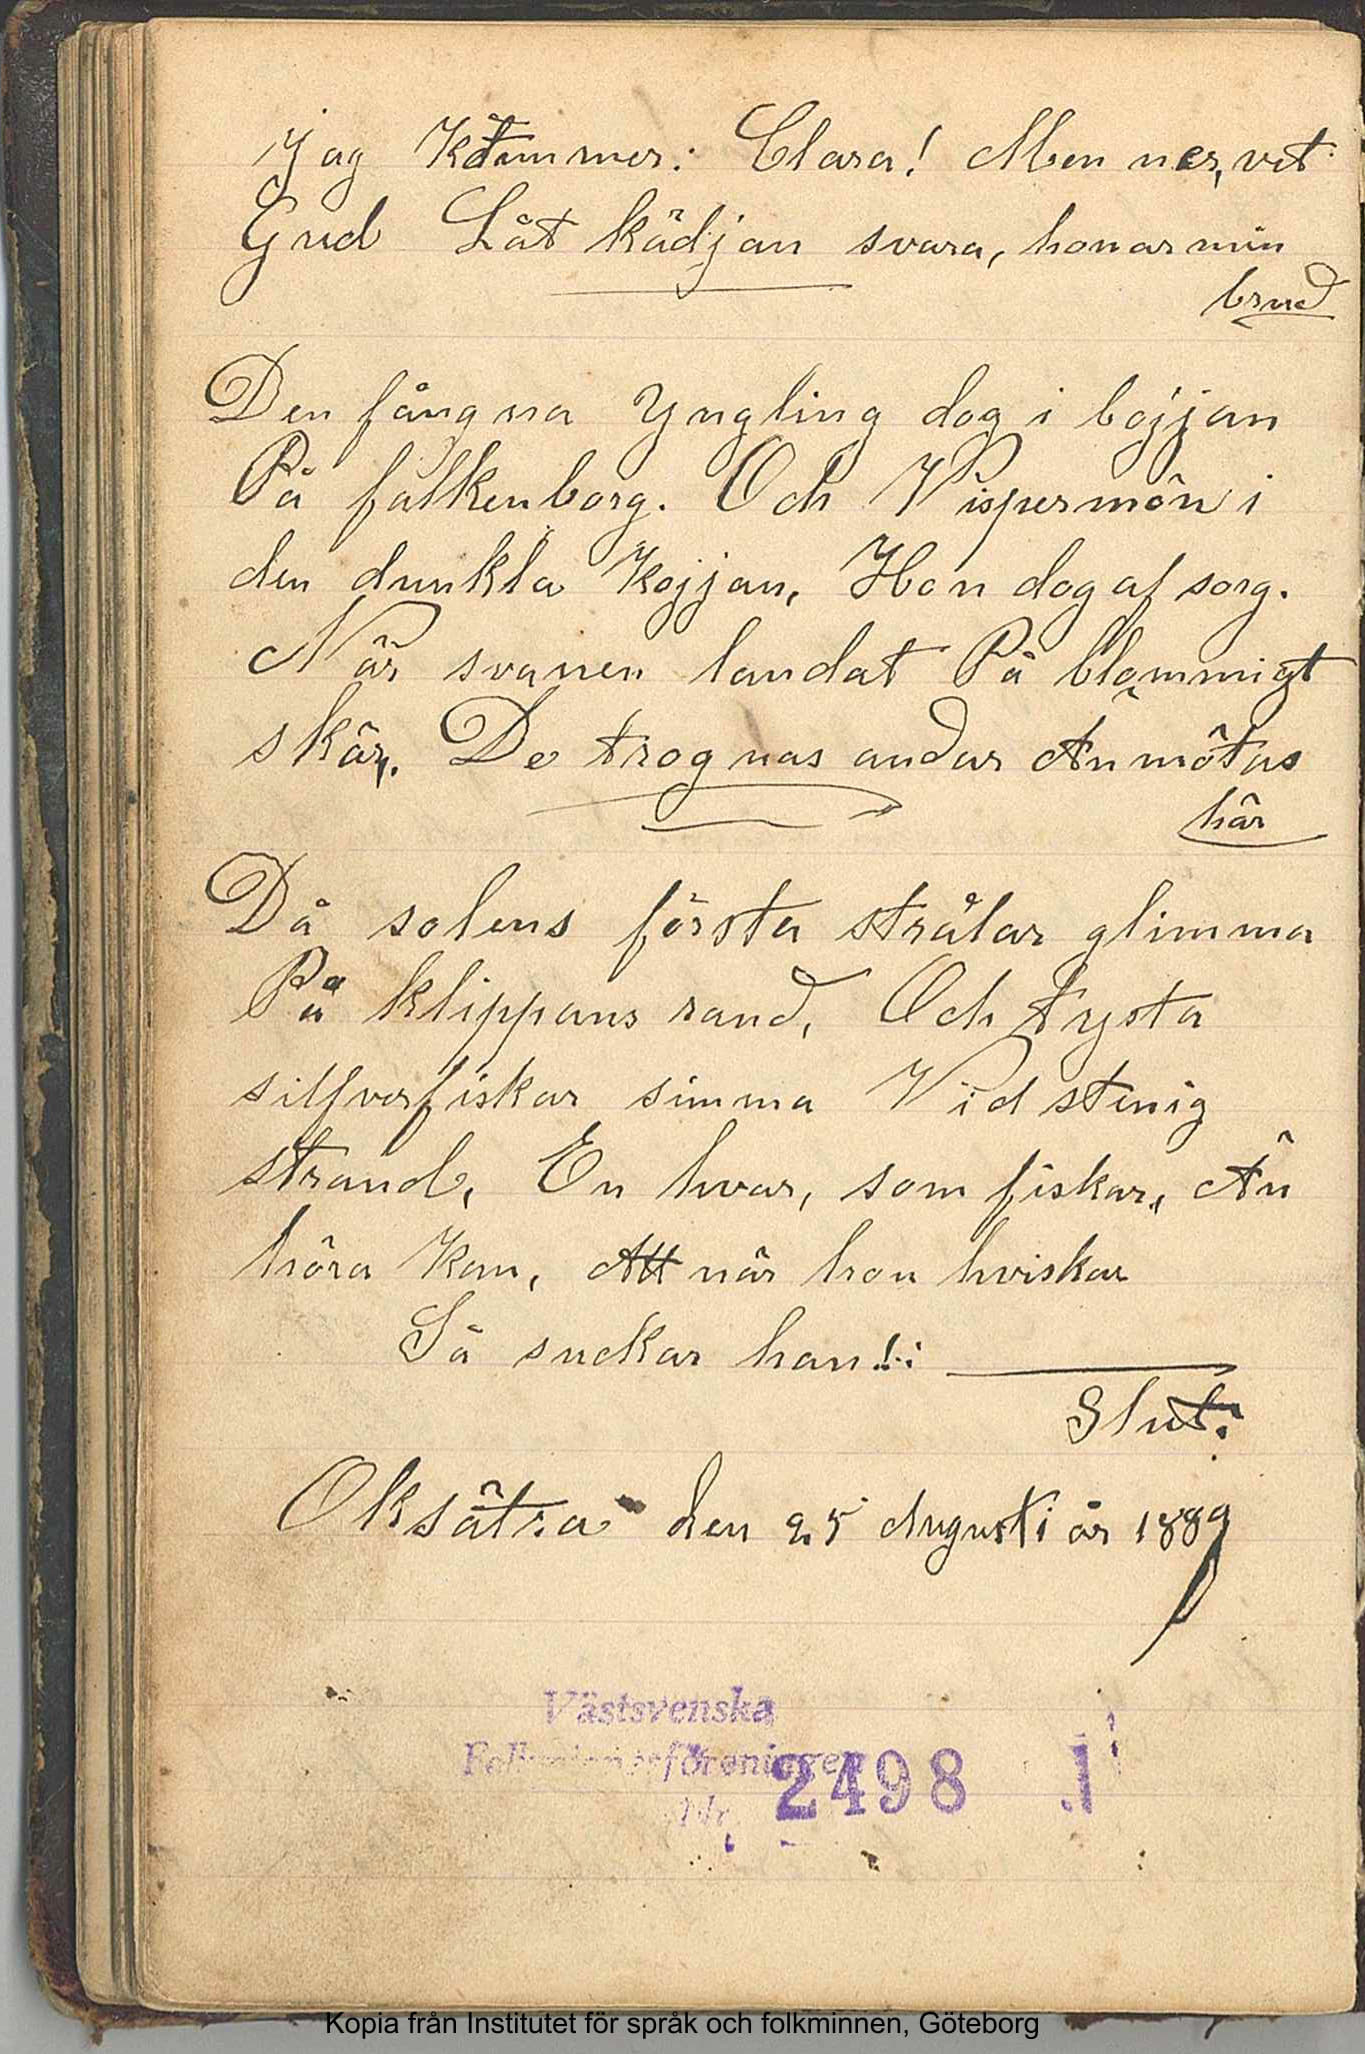 Jag kommer: Clara! Men ner, vet
Gud Låt kädjan svara, hon ar min
brud
Den fångna Yngling dog i bojjan
På falkenborg. Och Vispermön i
den dunkla kojjan, Hon dog af sorg.
När svanen landat På blommigt
skär. De trognas andar än mötas
här
Då solens första strålar glimma
På klippans rand, Och trysta
silfverfiskar simma Vid stenig
strand, En hvar, som fiskar, Än
höra kan, Att när hon hviskar
Så suckar han!:
Slut:
Oksätra den 25 Augusti år 1889
Västsvenska
Folkminnesföreningen
Nr 2498 1
Kopia från Institutet för språk och folkminnen, Göteborg